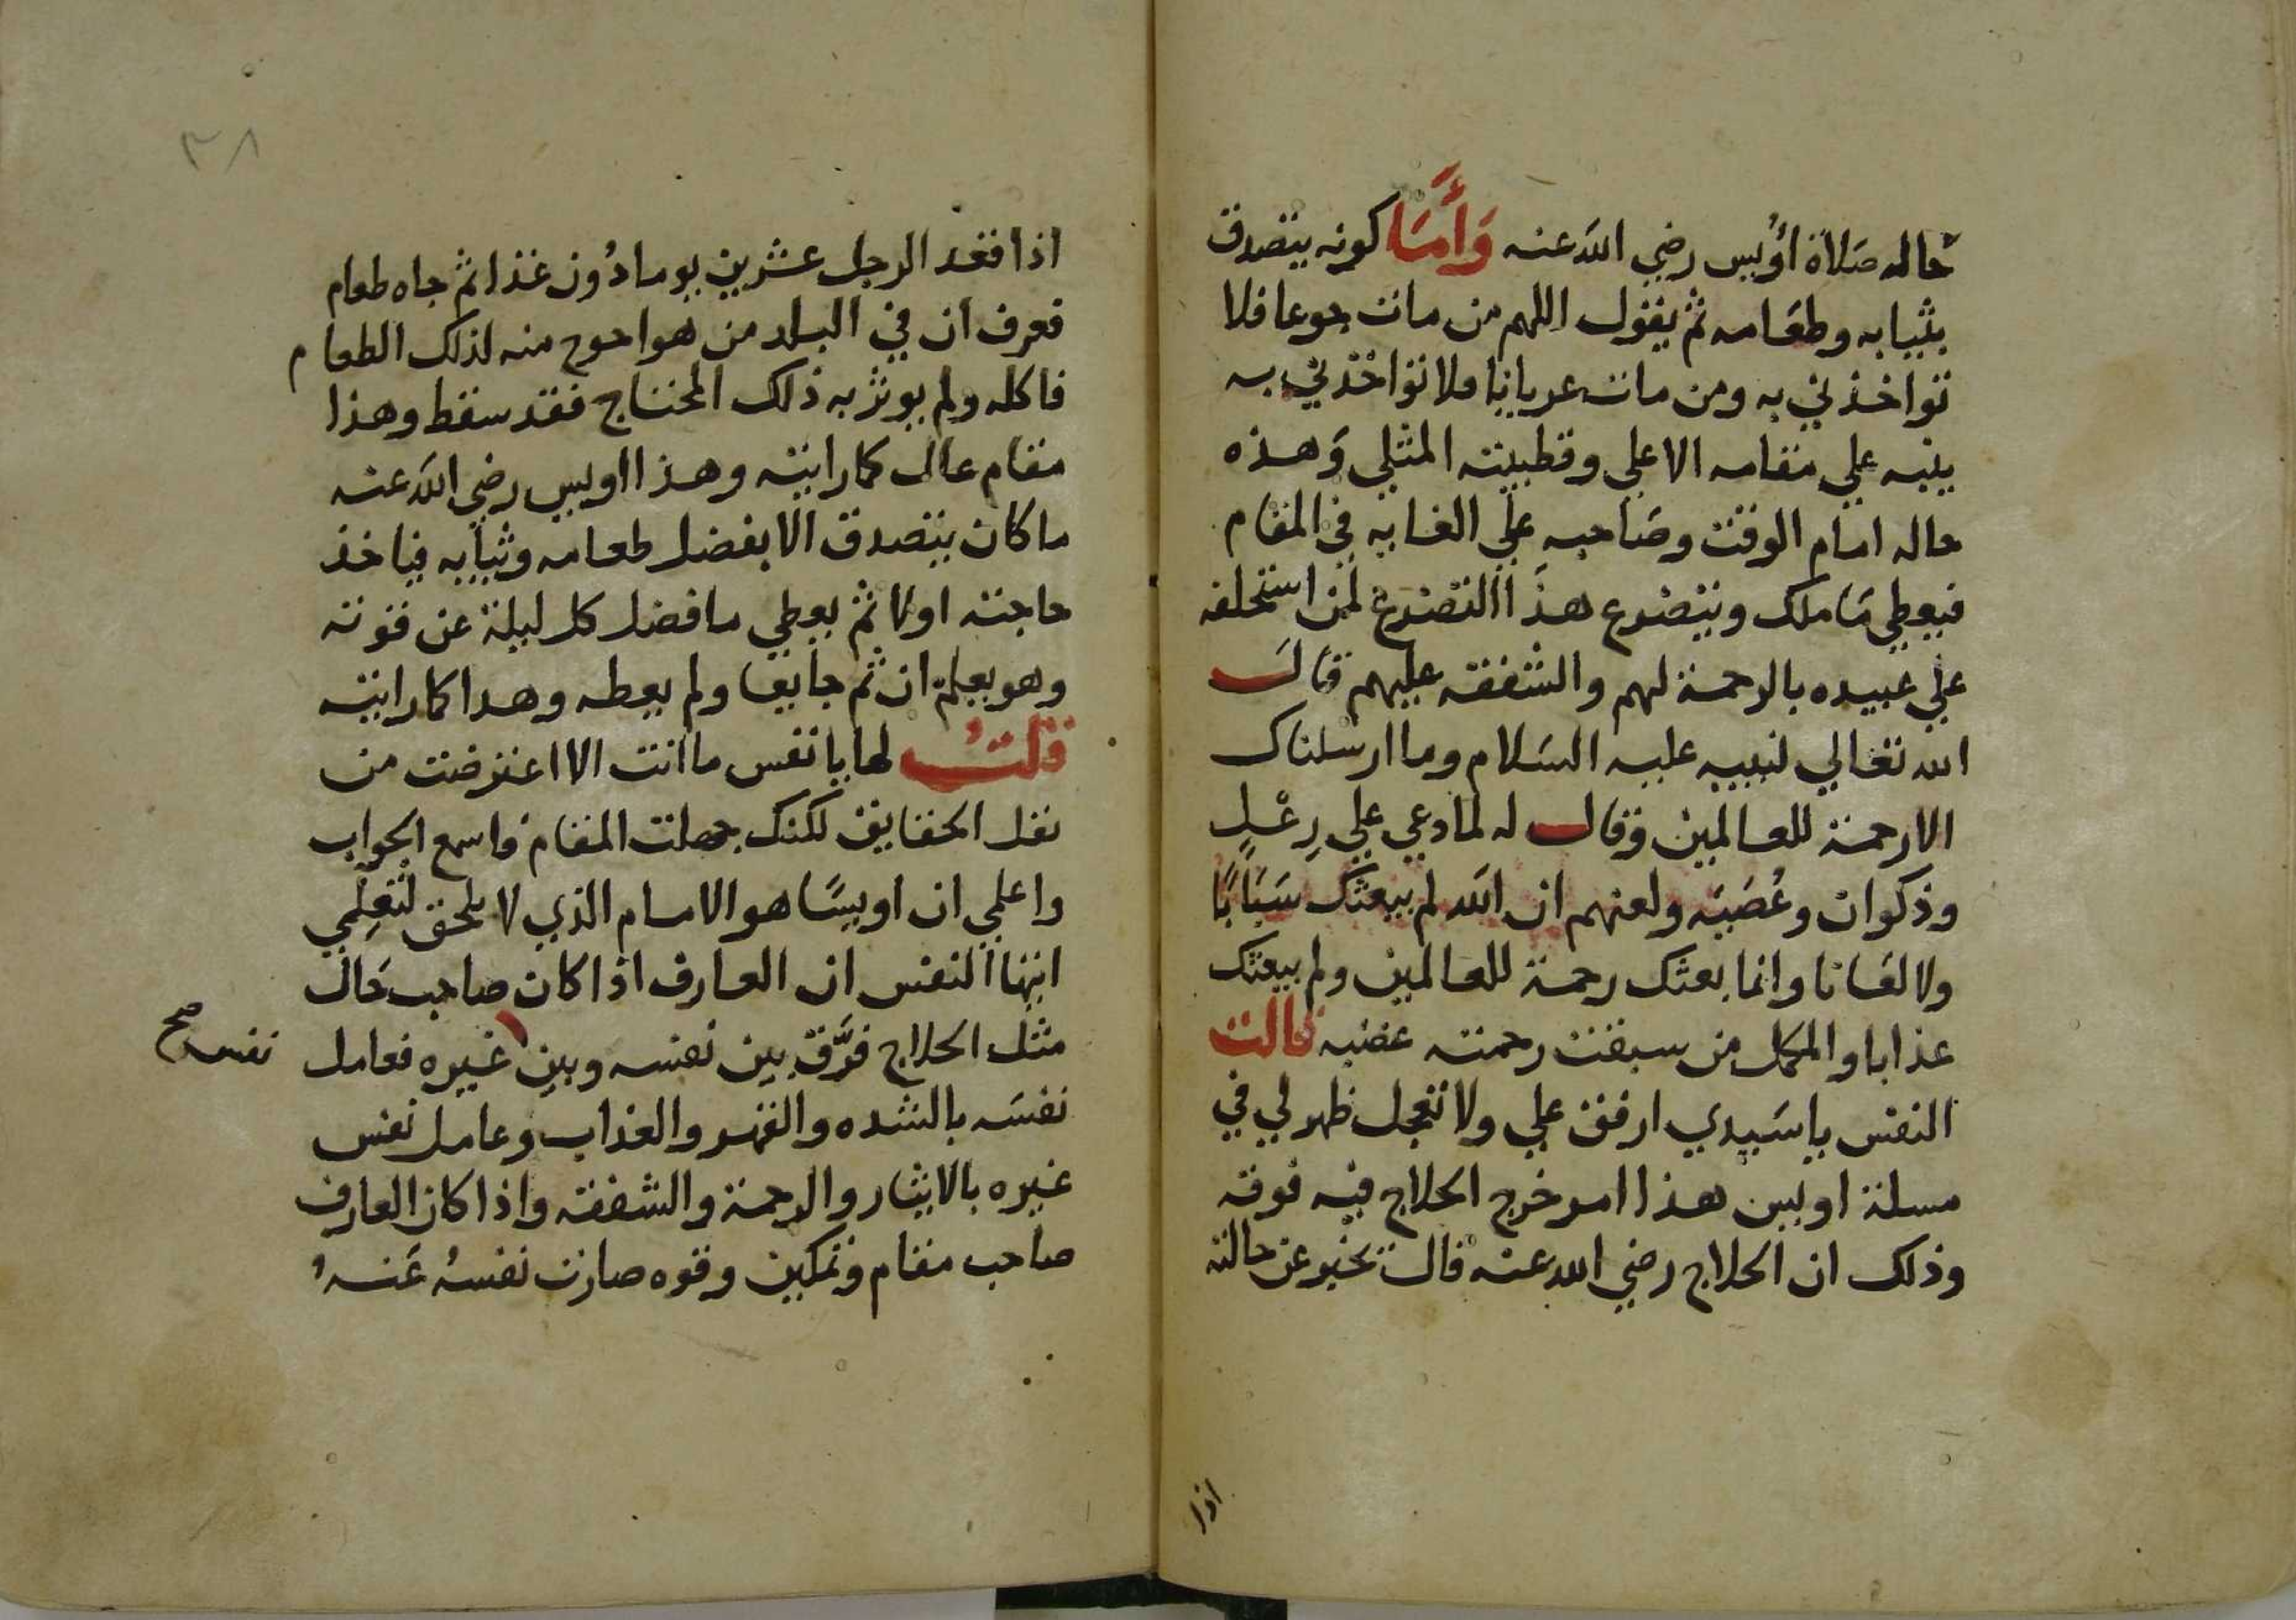 حاله صَلاة اُوَيس رضي الله عنه وَأَمَّا كونه يتصدق
بثيابه وطعَامه ثم يقول اللهم من مات جوعا فلا
تواخذني به ومن مات عريانا فلا تواخذني به
ينبه علي مقامه الاعلي وقطبيته المثلي وَهذه
حاله امام الوقت وصَاحبه علي الغايه في المقام
فيعطي مَا ملك ويتضرع هذا التضرع لمن استخلفه
علي عبيده بالرحمة لهم والشفقه عليهم قال
الله تعالي لنبيه عليه السَلام وما ارسلناك
الا رحمة للعالمين وقال له لما دعي علي رِعْلٍ
وذكوان وعُصَيَه ولعنهم ان الله لم يبعثك سَبَابًا
ولا لعَانا وانما بعثك رحمة للعالمين ولم يبعثك
عذابا والمكمل من سبقت رحمته غضبه قالت
النفس يا سَيدي ارفق علي ولا تعجل ظهر لي في
مسلة اويس هذا امر خرج الحلاج فيه فوقه
وذلك ان الحلاج رضي الله عنه قال يخبر عن حالته
اذا
٣٨
اذا قعد الرجل عشرين يوما دُون غذا ثم جاه طعام
فعرف ان في البلد من هو احوج منه لذلك الطعام
فاكله ولم يوثر به ذلك المحتاج فقد سقط وهذا
مقام عال كما رايته وهذا اويس رضي الله عنه
ما كان يتصدق الا بفضل طعامه وثيابه فياخذ
حاجته اولا ثم يعطي ما فضل كل ليلة عن قوته
وهو يعلم ان ثم جايعا ولم يعطه وهدا كما رايته
قلتُ لها يا نفس ما انت الا اعترضت من
نقل الحقايق لكنك جهلت المقام فاسمع الجواب
واعلمي ان اويسًا هو الامام الذي لا يلحق لتعلِمي
ايتها النفس ان العارف اذا كان صاحب حَال
مثل الحلاج فرَّق بين نفسه وبين غيره فعامل
نفسه صح
نفسَه بالشده والقهر والعذاب وعامل نفس
غيره بالايثار والرحمة والشفقه واذا كان العارف
صاحب مقام وتمكين وقوه صارت نفسُه عَنه